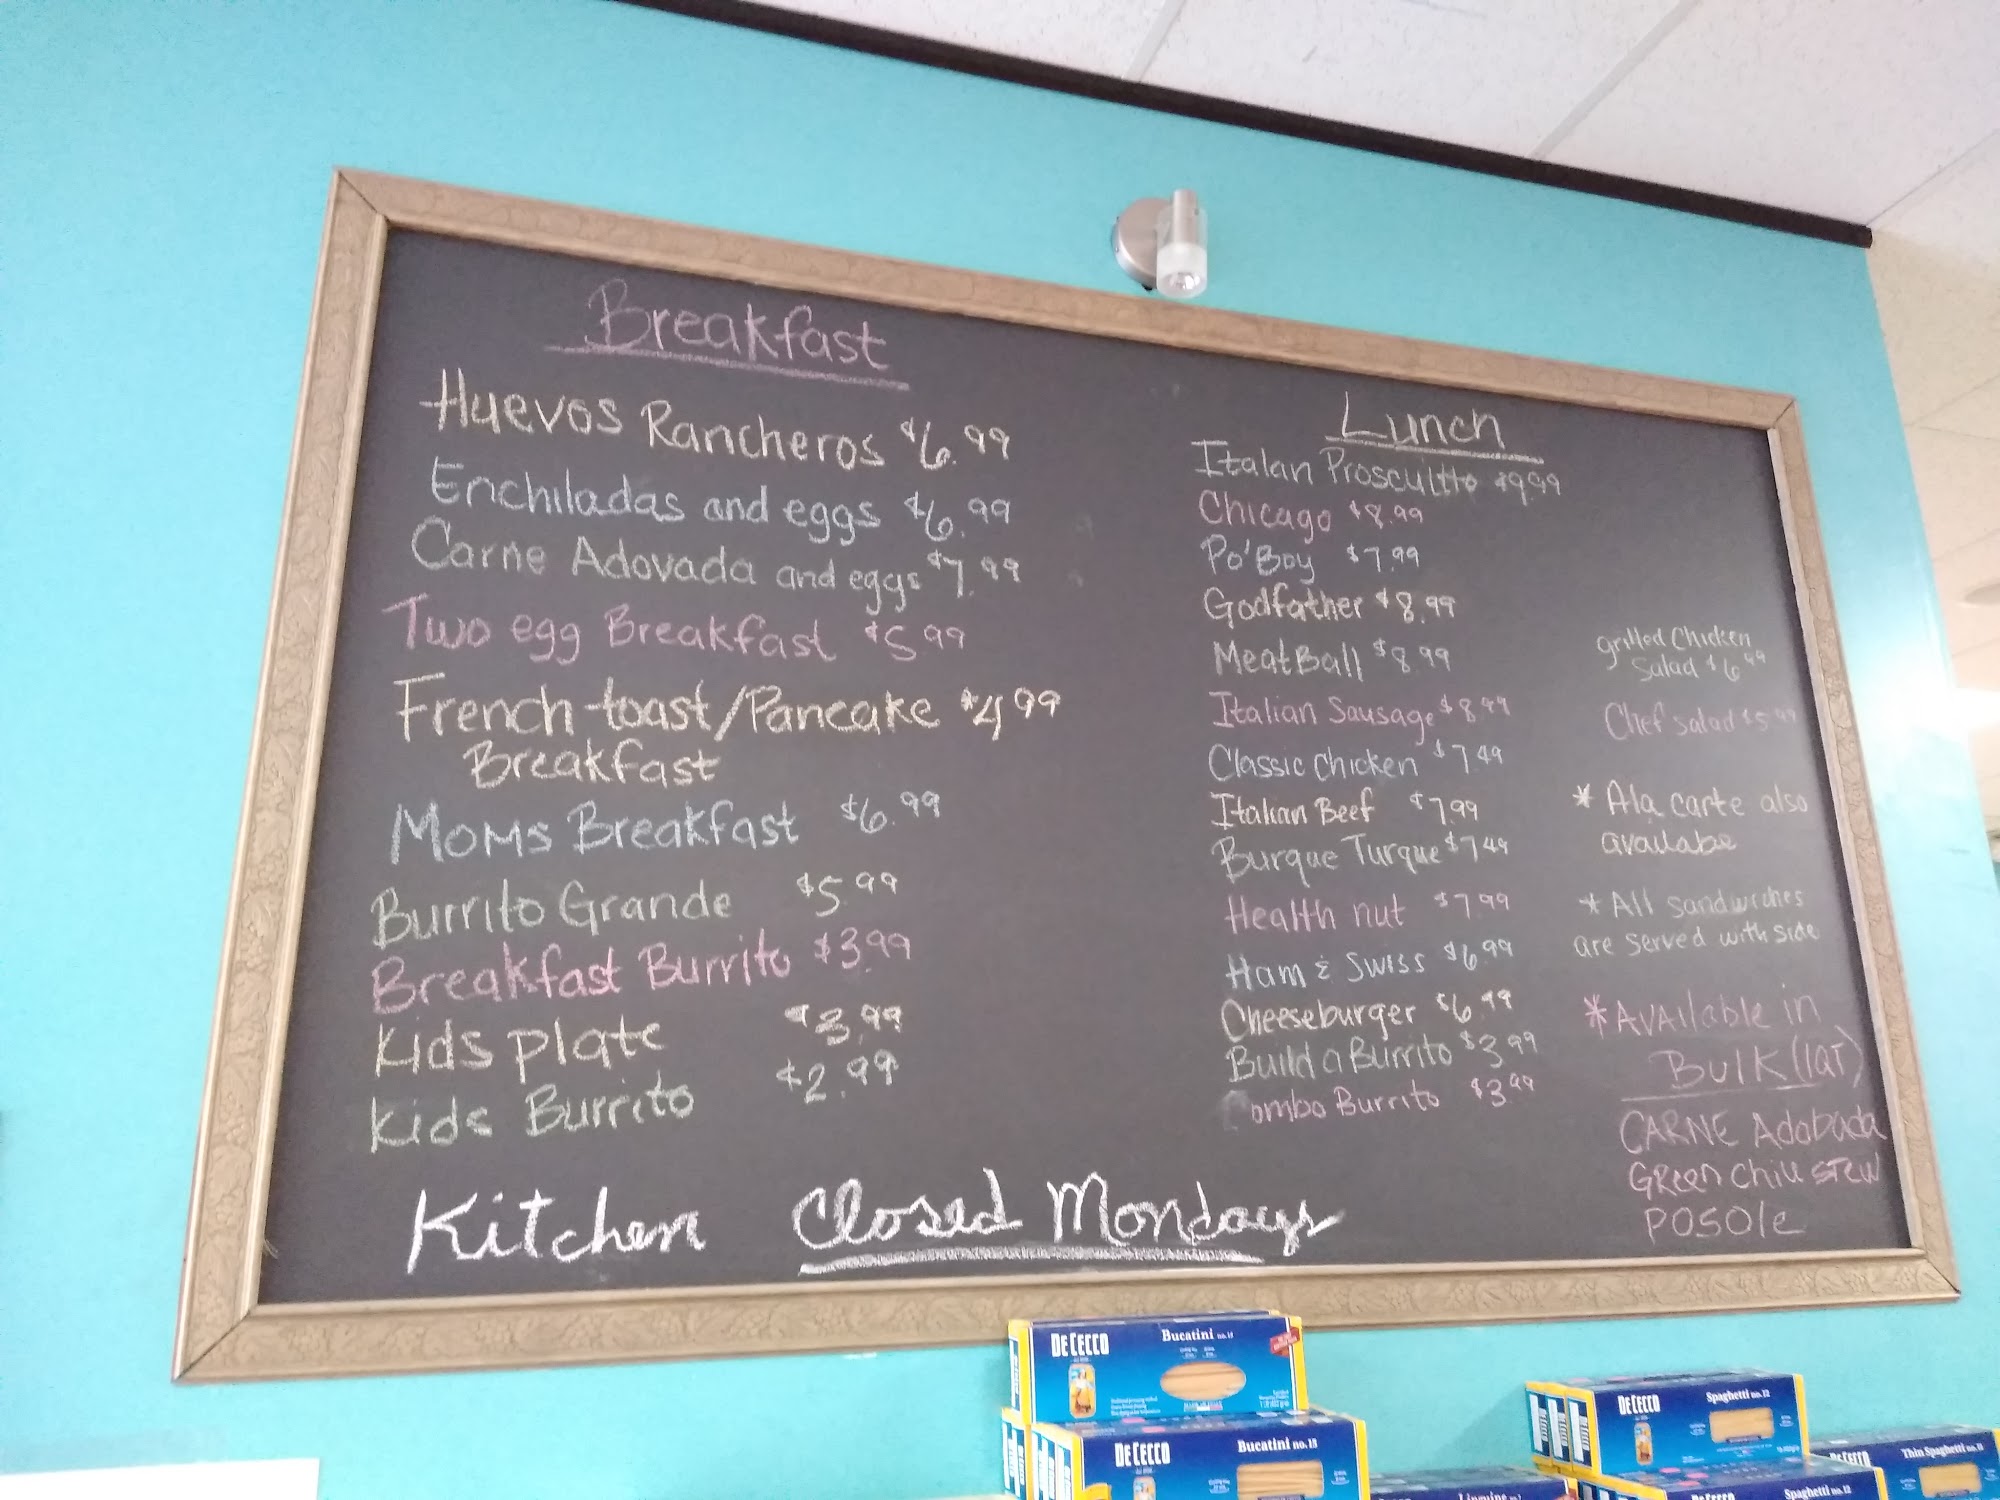 Breakfast
Huevos Rancheros $6.99
Enchiladas and eggs $6.99
Carne Adovada and eggs $7.99
Two egg Breakfast $5.99
French toast/Pancake $4.99
Breakfast
Moms Breakfast $6.99
Burrito Grande $5.99
Breakfast Burrito $3.99
Kids plate $3.99
Kids Burrito $2.99
Kitchen Closed Mondays
Lunch
Italan Proscuitto $9.99
Chicago $8.99
Po'Boy $7.99
Godfather $8.99
MeatBall $8.99
Italian Sausage $8.99
Classic Chicken $7.49
Italian Beef $7.99
Burque Turque $7.49
Health nut $7.99
Ham & Swiss $6.99
Cheeseburger $6.49
Build a Burrito $3.99
Combo Burrito $3.99
grilled Chicken
Salad $6.99
Chef salad $5.99
* Ala carte also
available
* All sandwiches
are served with side
*Available in
Bulk (1qt)
CARNE Adobada
Green Chili Stew
Posole
De Cecco Bucatini no. 15
De Cecco Bucatini no. 15
De Cecco Spaghetti no. 12
De Cecco Thin Spaghetti no. 11
Linguine
De Cecco Spaghetti no. 12